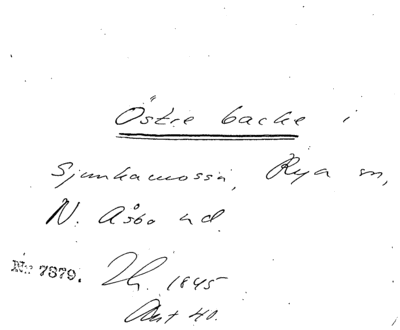 Östre backe i
Sjunkamossa, Rya sn,
N. Åsbo hd.
Nr 7379. Th. 1845
Ant 40.